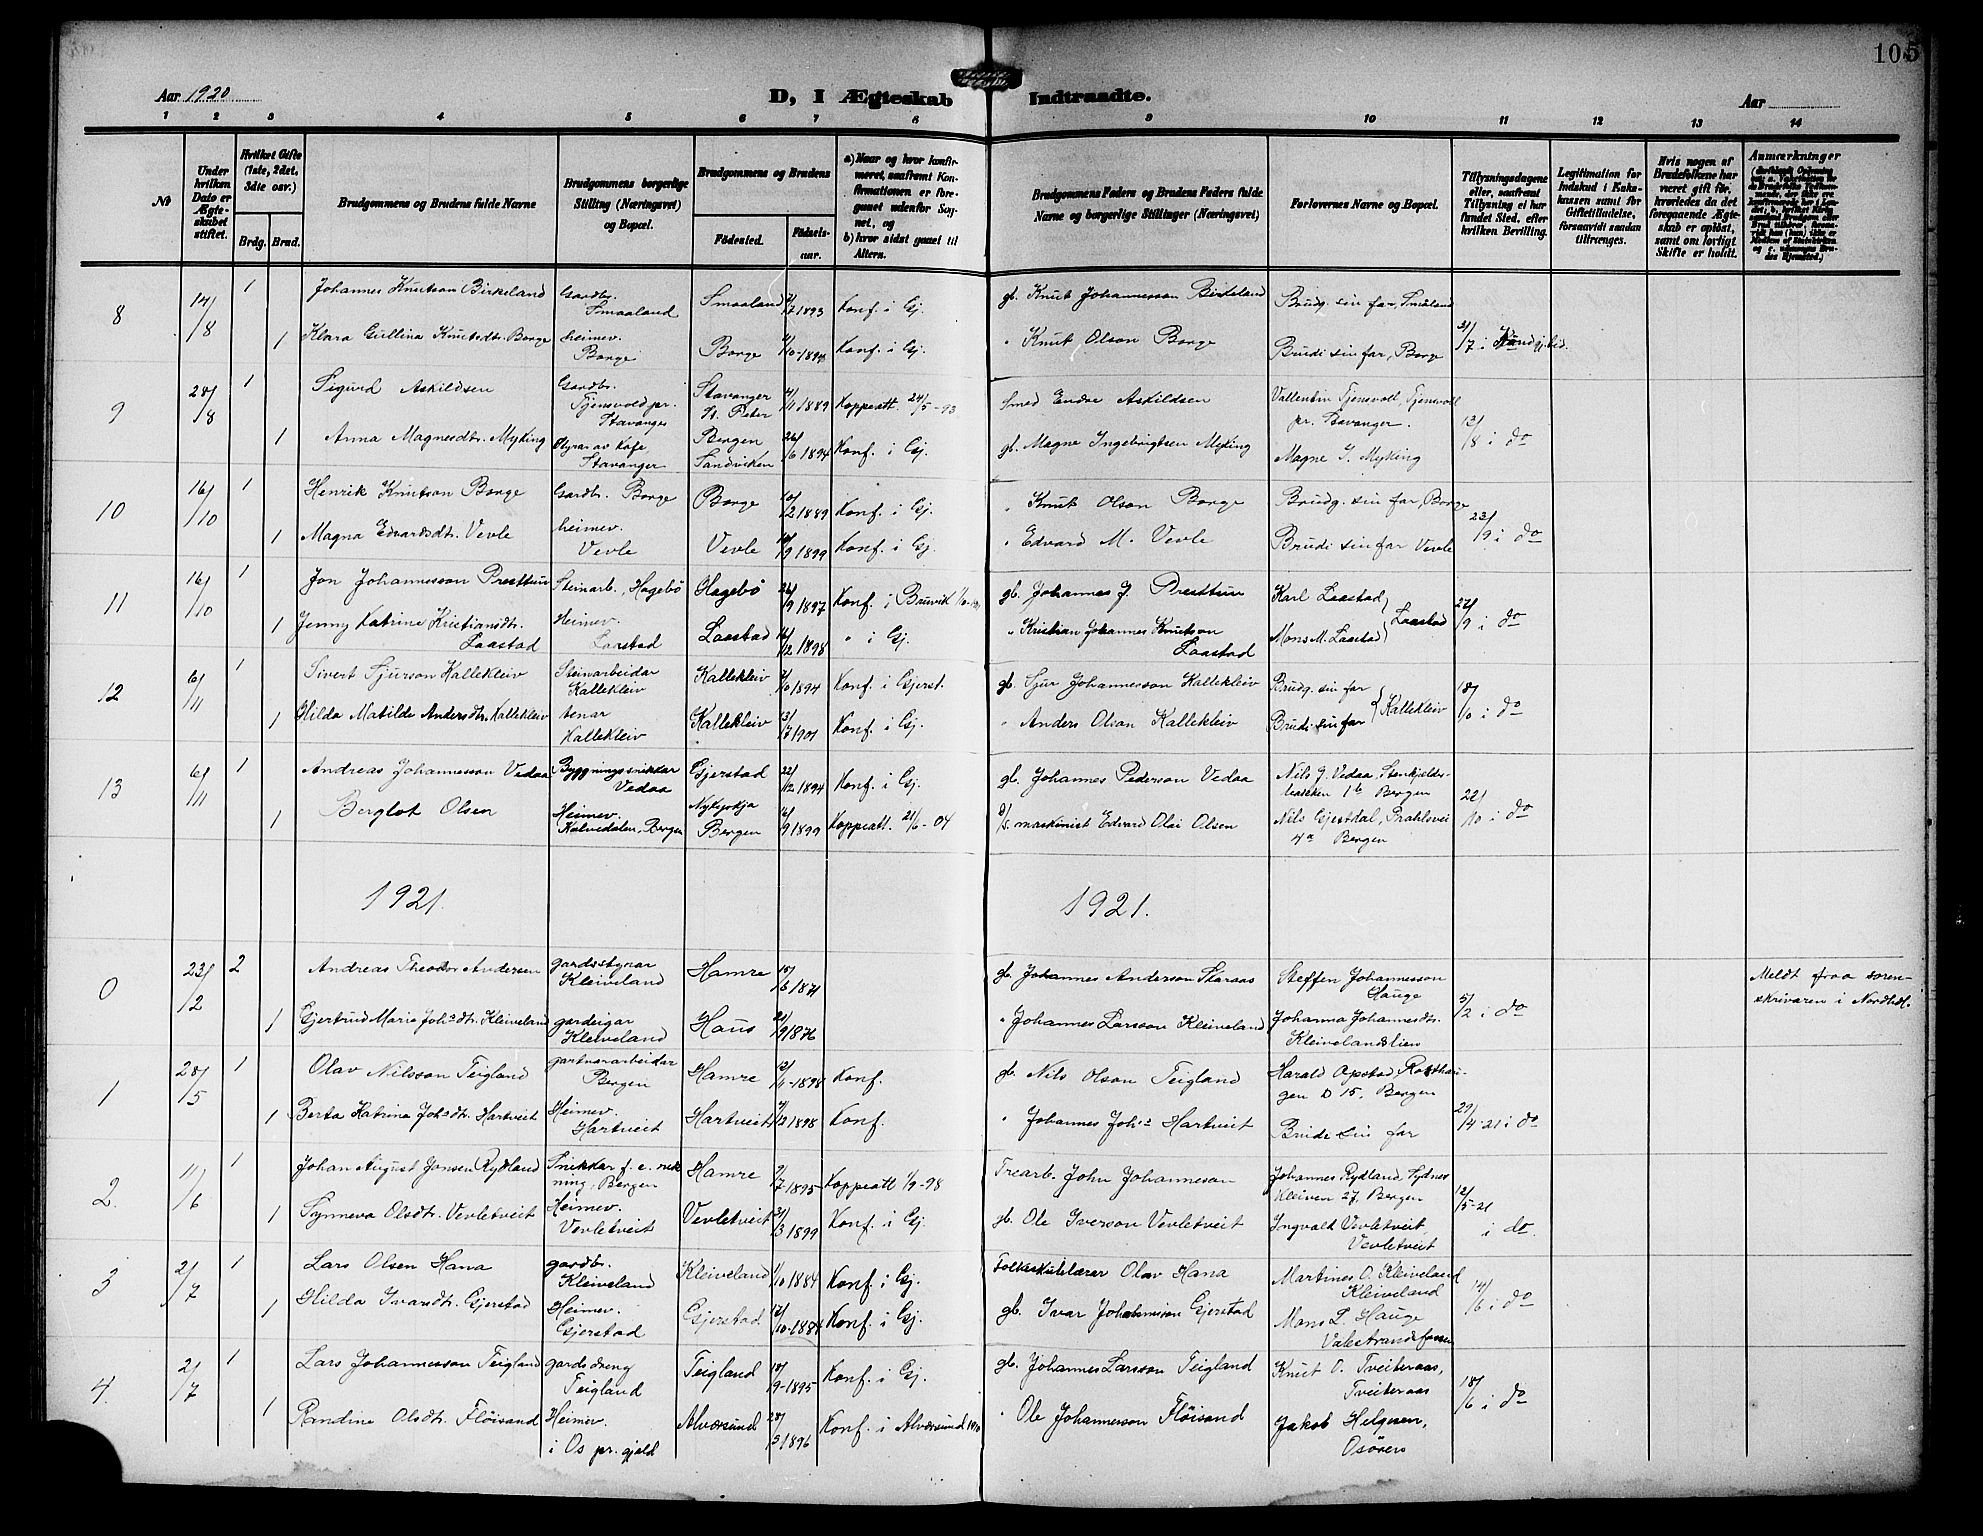 105
Aar 1920
D, I Ægteskab Indtraadte.
Aar
1 2 3 4 5 6 7 8 9 10 11 12 13 14
№
Under hvilken Dato er Ægteskabet stiftet.
Hvilket Gifte (1ste, 2det, 3die osv.)
Brdg. Brud.
Brudgommens og Brudens fulde Navne
Brudgommens borgerlige Stilling (Næringsvei) og Bopæl.
Brudgommens og Brudens
Fødested. Fødselsaar.
a) Naar og hvor konfirmeret, saafremt Konfirmationen er foregaaet udenfor Sognet, og
b) hvor sidst gaaet til Altern.
Brudgommens Faders og Brudens Faders fulde Navne og borgerlige Stillinger (Næringsvei)
Forlovernes Navne og Bopæl.
Tillysningsdagene eller, saafremt Tillysning ei har fundet Sted, efter hvilken Bevilling.
Legitimation for Indskud i Enkekassen samt for Giftetilladelse, forsaavidt saadan tiltrænges.
Hvis nogen af Brudefolkene har været gift før, hvorledes da det foregaaende Ægteskab er opløst, samt om lovligt Skifte er holdt.
Anmærkninger
8 14/8 1 Johannes Knutson Birkeland Gardbr. Smaaland Smaaland 1893 Konf. i Gj. gb. Knut Johannesson Birkeland Brudg. sin far, Småland
1 Klara Gullina Knutsdtr. Borge heimev. Borge Borge Konf. i Gj. " Knut Olson Borge Brudi sin far, Borge 31/7 i
9 28/8 1 Sigurd Askildsen Gardbr. Tjensvold pr. Stavanger Stavanger St. Peter 1889 Koppeatt. 24/5-93 Smed Endre Askildsen Vallentin Tjensvoll, Tjensvoll pr. Stavanger.
1 Anna Magnesdtr. Myking Styrar av Kafe Stavanger Bergen Sandviken 26/6 1894 Konf. i Gj. gb. Magne Ingebrigtsen Myking Magne I. Myking 13/8 i do
10 16/10 1 Henrik Knutson Borge Gardbr. Borge Borge 10/2 1889 Konf. i Gj. " Knut Olson Borge Brudg. sin far, Borge
1 Magna Edvardsdtr. Vevle heimev. Vevle Vevle 1899 Konf. i Gj. " Edvard M. Vevle Brudi sin far Vevle 23/9 i do
11 16/10 1 Jon Johannesson Presttun Steinarb., Hagebø Hagebø 26/9 1897 Konf. i Bruvik gb. Johannes J. Presttun Karl Laastad
1 Jenny Katrine Kristiansdtr. Laastad Heimev. Laastad Laastad 16/12 1898 " i Gj. " Kristian Johannes Knutson Laastad Mons M. Laastad } Laastad 27/9 i do
12 6/11 1 Sivert Sjurson Kallekleiv Steinarbeidar Kallekleiv Kallekleiv 1894 Konf. i Gjerst. gb. Sjur Johannesson Kallekleiv Brudg. sin far
1 Hilda Matilde Andersdtr. Kallekleiv tenar Kallekleiv Kallekleiv 1901 Konf. i Gj. " Anders Olson Kallekleiv Brudi sin far } Kallekleiv 18/10 i do
13 6/11 1 Andreas Johannesson Vedaa Byggningssnikkar Vedaa Gjerstad 22/12 1894 Konf. i Gj. gb. Johannes Pederson Vedaa Nils J. Vedaa, Bergen
1 Bergliot Olsen Heimev. Kalvedalen, Bergen Nykyrkja Bergen 1899 Koppeatt. 21/6-04 D/S. maskinist Edvard Olai Olsen Nils Gjestdal, Prahlsvei 4a Bergen 22/10 i do
1921. 1921.
0 23/2 2 Andreas Theodor Andersen gardsstyrar Kleiveland Hamre 1871 gb. Johannes Anderson Skaraas Steffen Johannesson Hauge Meldt fraa sorenskrivaren i Nordhdl.
1 Gjertrud Maria Johsdtr. Kleiveland gardeigar Kleiveland Haus 1876 " Johannes Larsson Kleiveland Johanna Johannesdtr. Kleivelandslien 5/2 i do
1 28/5 1 Olav Nilsson Teigland gartnararbeidar Bergen Hamre 1898 Konf. gb. Nils Olson Teigland Harald Opstad, D 15, Bergen
1 Berta Katrina Johsdtr. Hartveit Heimev. Hartveit Hartveit 1898 Konf. " Johannes Johs Hartveit Brudi sin far 29/4-21 i do
2. 11/6 1 Johan August Jonsen Rydland Snikkar f. e. rekning, Bergen Hamre 1895 Koppeatt 1/9-98 Trearb. John Johanneson Johannes Rydland, Sydneskleiven 27, Bergen
1 Synneva Olsdtr. Vevletveit Heimev. Vevletveit Vevletveit 31/3 1899 Konf. i Gj. gb. Ole Iverson Vevletveit Ingvald Vevletveit, Vevletveit 12/5-21 i do.
3 2/7 1 Lars Olsen Hana gardbr. Kleiveland Kleiveland 1884 Konf. i Gj. Folkeskulelærer Olav Hana Martines O. Kleiveland Kleiveland
1 Hilda Ivarsdtr. Gjerstad Heimev. Gjerstad Gjerstad 17/10-1884 Konf. i Gj. gb. Ivar Johannesson Gjerstad Mons L. Hauge Valestrandsfossen 14/6 i do
4. 2/7 1 Lars Johannesson Teigland gardsdreng Teigland Teigland 18/9-1895 Konf. i Gj. gb. Johannes Larsson Teigland Knut O. Tveiteraas, Tveiteraas
1 Randine Olsdtr. Fløisand Heimev. i Os pr. gjeld Alversund 1896 Konf. i Alversund " Ole Johannesson Fløisand Jakob Helgesen, Osøren 18/6 i do